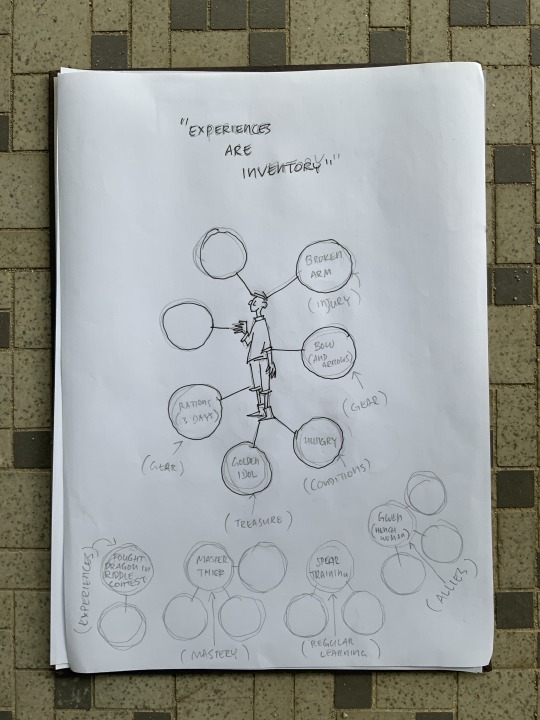 "EXPERIENCES
ARE
INVENTORY"
BROKEN
ARM
(INJURY)
BOW
(AND
ARROWS)
(GEAR)
RATIONS
(3 DAYS)
(GEAR)
HUNGRY
(CONDITIONS)
GOLDEN
IDOL
(TREASURE)
GWEN
(HENCH
WOMAN)
(ALLIES)
FOUGHT
DRAGON IN
RIDDLE
CONTEST
(EXPERIENCES)
MASTER
THIEF
(MASTERY)
SPEAR
TRAINING
(REGULAR
LEARNING)